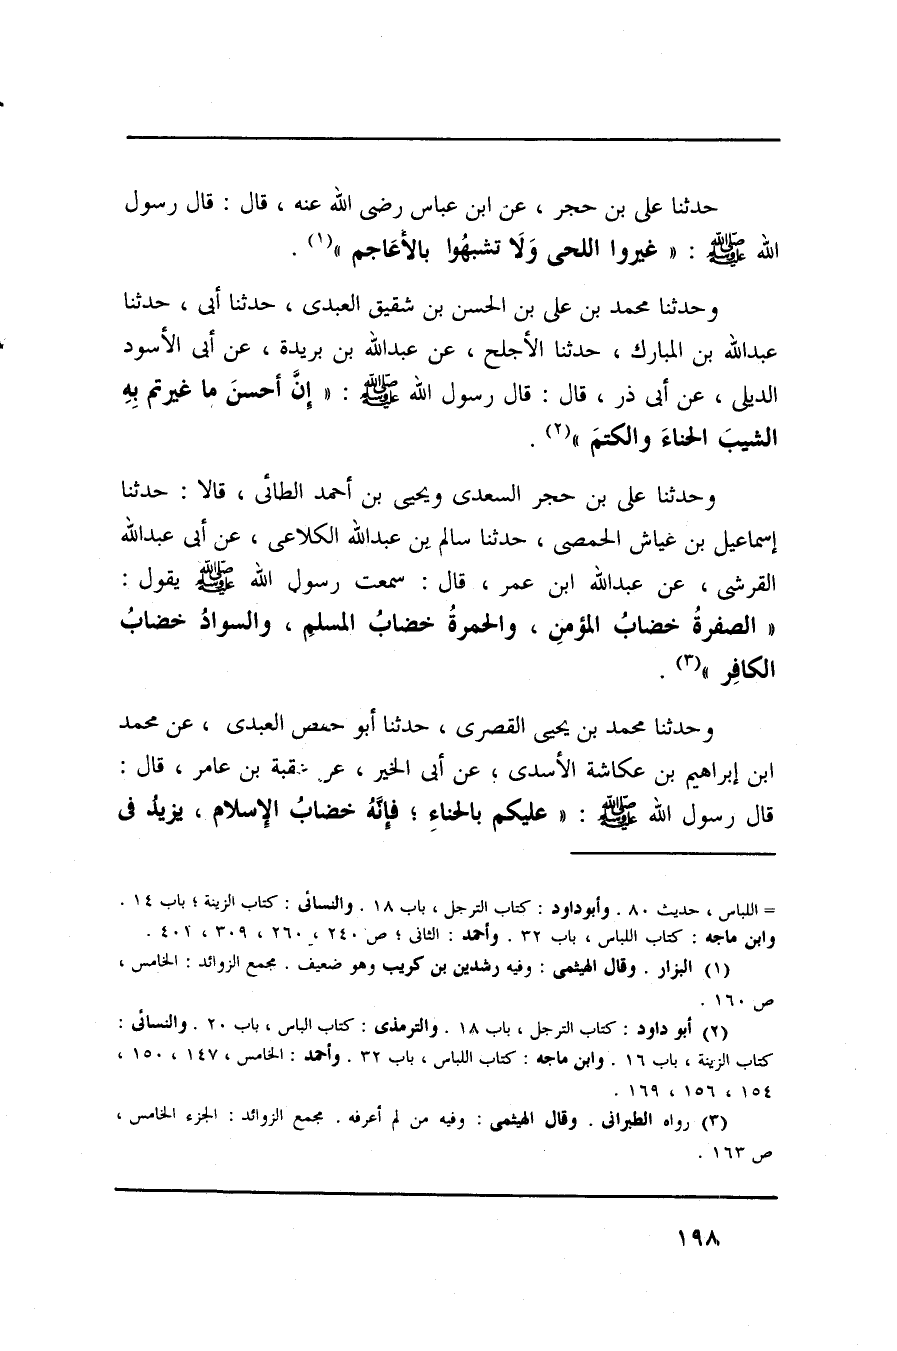 حدثنا على بن حجر ، عن ابن عباس رضى الله عنه ، قال : قال رسول
الله ﷺ : « غيروا اللحى وَلَا تشبهُوا بالأعَاجم »(١) .
وحدثنا محمد بن على بن الحسن بن شقيق العبدى ، حدثنا أبى ، حدثنا
عبدالله بن المبارك ، حدثنا الأجلح ، عن عبدالله بن بريدة ، عن أبى الأسود
الديلى ، عن أبى ذر ، قال : قال رسول الله ﷺ : « إِنَّ أحسنَ ما غيرتم بِهِ
الشيبَ الحناءَ والكتمَ »(٢) .
وحدثنا على بن حجر السعدى ويحيى بن أحمد الطائى ، قالا : حدثنا
إسماعيل بن غياش الحمصى ، حدثنا سالم بن عبدالله الكلاعى ، عن أبى عبدالله
القرشى ، عن عبدالله ابن عمر ، قال : سمعت رسول الله ﷺ يقول :
« الصفرةُ خضابُ المؤمنِ ، والحمرةُ خضابُ المسلمِ ، والسوادُ خضابُ
الكافِر »(٣) .
وحدثنا محمد بن يحيى القصرى ، حدثنا أبو حفص العبدى ، عن محمد
ابن إبراهيم بن عكاشة الأسدى ؛ عن أبى الخير ، عن عقبة بن عامر ، قال :
قال رسول الله ﷺ : « عليكم بالحناءِ ؛ فإنَّهُ خضابُ الإسلام ، يزيدُ فى
= اللباس ، حديث ٨٠ . وأبوداود : كتاب الترجل ، باب ١٨ . والنسائى : كتاب الزينة ؛ باب ١٤ .
وابن ماجه : كتاب اللباس ، باب ٣٢ . وأحمد : الثانى ؛ ص ٢٤٠ ، ٢٦٠ ، ٣٠٩ ، ٤٠١ .
(١) البزار . وقال الهيثمى : وفيه رشدين بن كريب وهو ضعيف . مجمع الزوائد : الخامس ،
ص ١٦٠ .
(٢) أبو داود : كتاب الترجل ، باب ١٨ . والترمذى : كتاب الباس ، باب ٢٠ . والنسائى :
كتاب الزينة ، باب ١٦ . وابن ماجه : كتاب اللباس ، باب ٣٢ . وأحمد : الخامس ، ١٤٧ ، ١٥٠ ،
١٥٤ ، ١٥٦ ، ١٦٩ .
(٣) رواه الطبرانى . وقال الهيثمى : وفيه من لم أعرفه . مجمع الزوائد : الجزء الخامس ،
ص ١٦٣ .
١٩٨